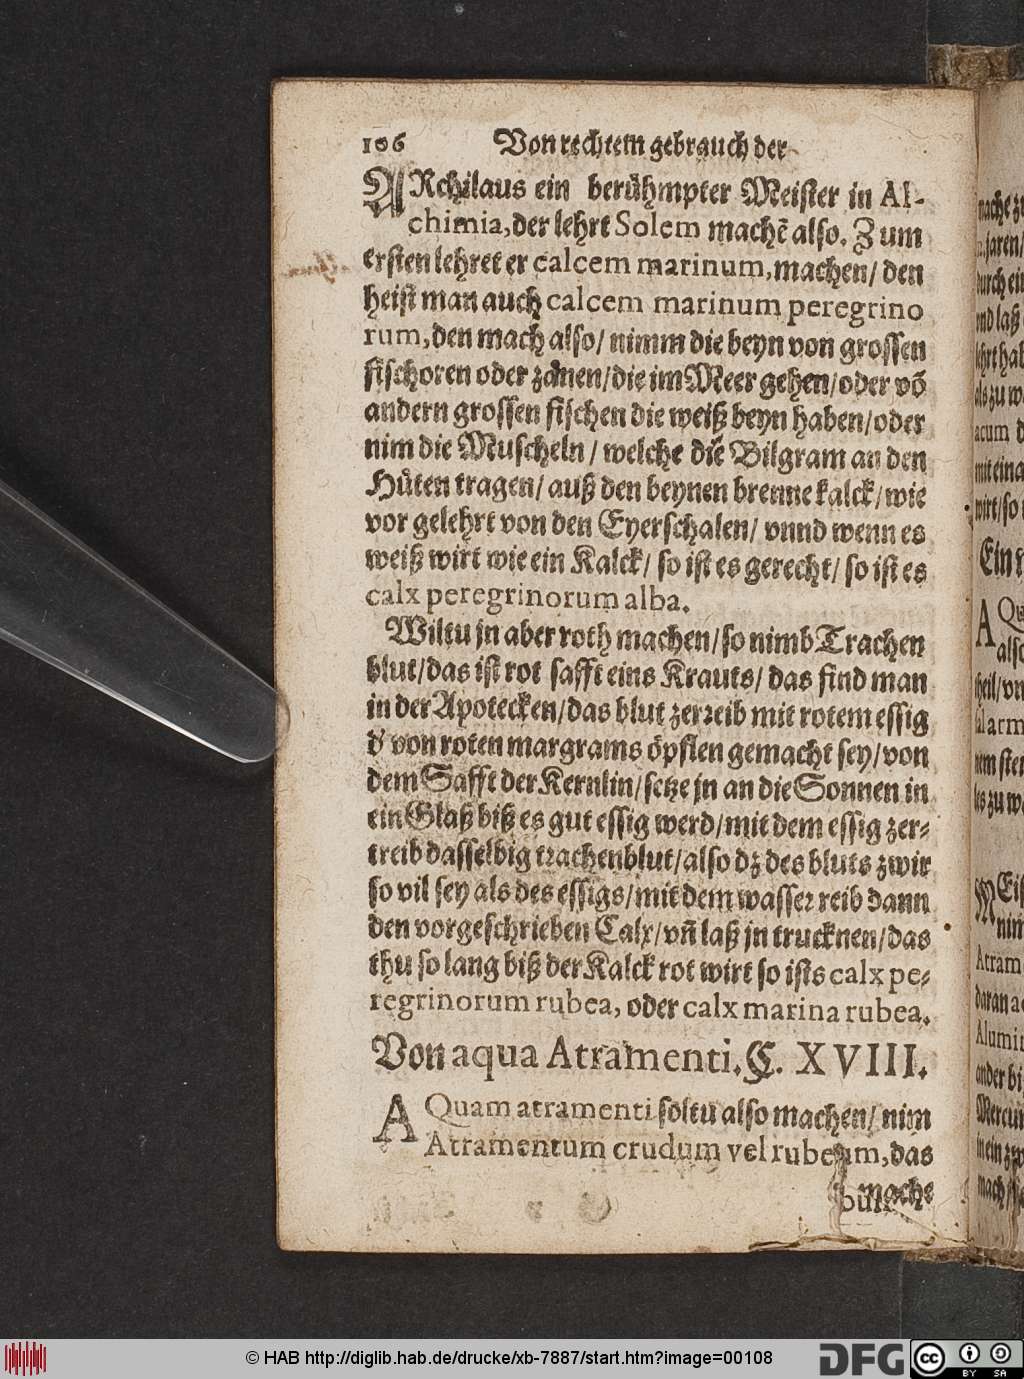 106 Von rechtem gebrauch der
ARchilaus ein berühmpter Meister in Al-
chimia, der lehrt Solem machẽ also. Zum
ersten lehret er calcem marinum, machen/ den
heist man auch calcem marinum peregrino
rum, den mach also/ nimm die beyn von grossen
fischoren oder zänen/die im Meer gehen/oder võ
andern grossen fischen die weiß beyn haben/oder
nim die Muscheln/ welche die Bilgram an den
Hüten tragen/ auß den beynen brenne kalck/wie
vor gelehrt von den Eyerschalen/ vnnd wenn es
weiß wirt wie ein Kalck/ so ist es gerecht/ so ist es
calx peregrinorum alba.
Wiltu jn aber roth machen/so nimb Trachen
blut/das ist rot safft eins Krauts/ das find man
in der Apotecken/das blut zerreib mit rotem essig
d' von roten margrams öpflen gemacht sey/von
dem Safft der Kernlin/setze jn an die Sonnen in
ein Glaß biß es gut essig werd/mit dem essig zer-
treib dasselbig trachenblut/also dz des bluts zwir
so vil sey als des essigs/mit dem wasser reib dann
den vorgeschrieben Calx/vñ laß jn trucknen/das
thu so lang biß der Kalck rot wirt so ists calx pe-
regrinorum rubea, oder calx marina rubea.
Von aqua Atramenti. C. XVIII.
AQuam atramenti soltu also machen/ nim
Atramentum crudum vel rubeum, das
mache
© HAB http://diglib.hab.de/drucke/xb-7887/start.htm?image=00108
DFG
cc BY SA